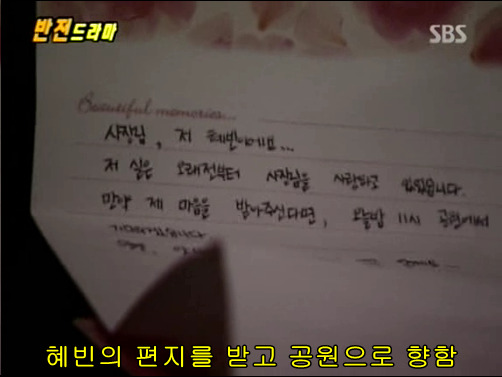 반전드라마
SBS
Beautiful memories...
사장님, 저 혜빈이에요...
저 실은 오래전부터 사장님을 사랑하고 있었습니다.
만약 제 마음을 받아주신다면, 오늘밤 11시 공원에서
기다리겠습니다
혜빈의 편지를 받고 공원으로 향함